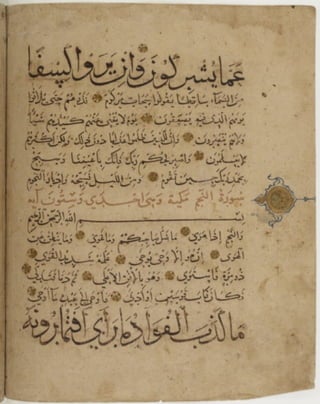 عما يشركون وان يروا كسفا
من السماء ساقطا يقولوا سحاب مركوم فذرهم حتى يلاقوا
يومهم الذي فيه يصعقون يوم لا يغني عنهم كيدهم شيئا
ولا هم ينصرون وان للذين ظلموا عذابا دون ذلك ولكن اكثرهم
لا يعلمون واصبر لحكم ربك فانك باعيننا وسبح
بحمد ربك حين تقوم ومن الليل فسبحه وادبار النجوم
سورة النجم مكية وهي احدى وستون آية
بسم الله الرحمن الرحيم
والنجم اذا هوى ما ضل صاحبكم وما غوى وما ينطق عن
الهوى ان هو الا وحي يوحى علمه شديد القوى
ذو مرة فاستوى وهو بالافق الاعلى ثم دنا فتدلى
فكان قاب قوسين او ادنى فاوحى الى عبده ما اوحى
ما كذب الفؤاد ما رأى افتمارونه